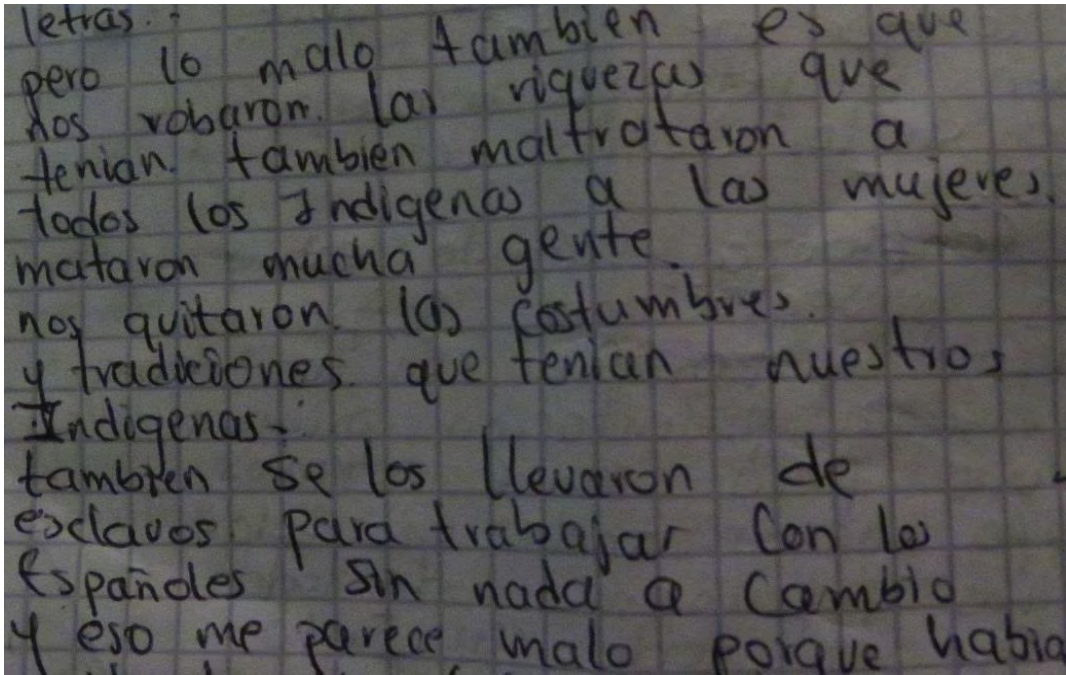 letras.-
pero lo malo tambien es que
nos robaron. las riquezas que
tenian. tambien maltrataron a
todos los Indigenas a las mujeres.
mataron mucha gente.
nos quitaron. las costumbres.
y tradiciones. que tenian nuestros
Indigenas.-
tambien se los llevaron de
esclavos para trabajar con los
Españoles sin nada a cambio
y eso me parece malo porque habia